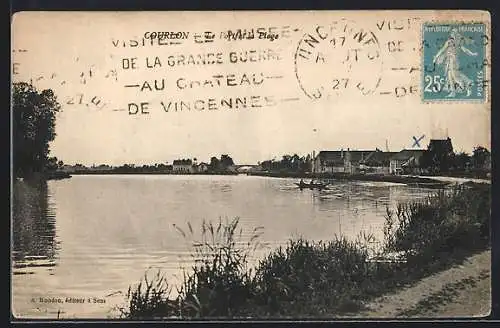 COURLON - Le Port et la Plage
VISITEZ LE MUSÉE
DE LA GRANDE GUERRE
AU CHATEAU
DE VINCENNES
VINCENNES
17
27
27
VISITEZ
DE LA
AU
DE V
REPUBLIQUE FRANÇAISE
25c
POSTES
A. Rondon, éditeur à Sens